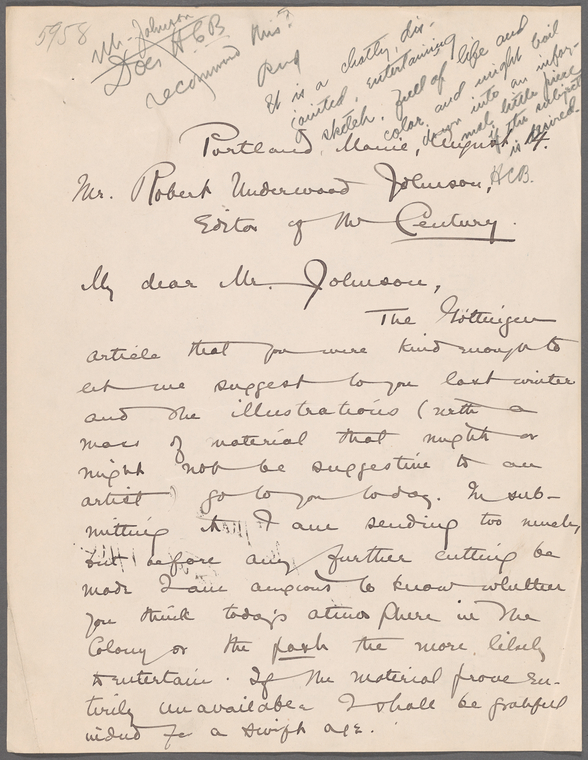 5958
Mr. Johnson
Does HCB
recommend this?
RUJ
It is a chatty, dis-
jointed, entertaining
sketch, full of life and
color and might boil
down into an infor-
mal little piece
if the subject
is desired.
HCB.
Portland, Maine, August 14.
Mr. Robert Underwood Johnson,
Editor of The Century.
My dear Mr. Johnson,
The Göttingen
article that you were kind enough to
let me suggest to you last winter
and the illustrations (with a
mass of material that might or
might not be suggestive to an
artist) go to you today. In sub-
mitting it I am sending too much,
but before any further cutting be
made I am anxious to know whether
you think today's atmosphere in the
Colony or the past the more likely
to entertain. If the material prove en-
tirely unavailable I shall be grateful
indeed for a swift